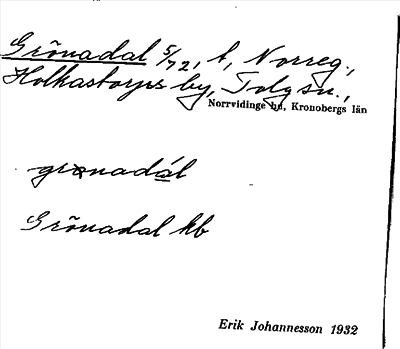 Grönadal 5/72, t, Norreg.,
Holkastorps by, Tolg sn.,
Norrvidinge hd, Kronobergs län
grønadál
Grönadal kb
Erik Johannesson 1932